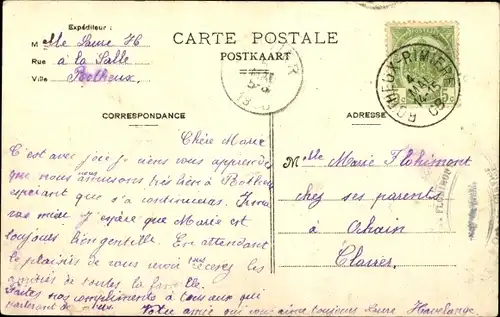 Expéditeur :
CARTE POSTALE
POSTKAART
Mlle Laure H
Rue à la Salle
Ville Botheux.
CORRESPONDANCE
ADRESSE
Chère Marie
C'est avec joie je viens vous apprendre
que nous nous amusons très bien à Botheux
espérant que sa continuera.
J'espère que Marie est
toujours bien gentille. En attendant
le plaisir de vous revoir recevez les
amitiés de toutes la famille.
Faites nos compliments à tous ceux qui
parleront de nous
Votre amie qui vous aime toujours Laure Havelange
Mlle Marie Flohimont
chez ses parents
à Ochain
Clavier